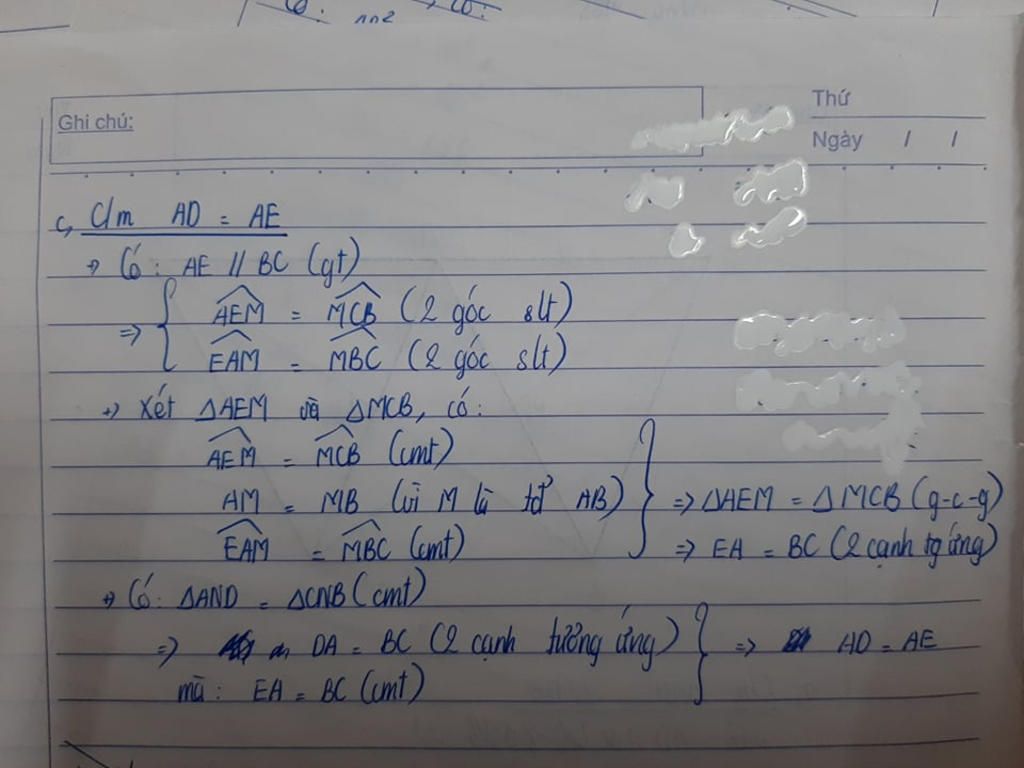 Ghi chú:
Thứ
Ngày / /
c, C/m AD = AE
+> Có: AE // BC (gt)
=> { AEM = MCB (2 góc slt)
EAM = MBC (2 góc slt)
+> Xét ΔAEM và ΔMCB, có:
AEM = MCB (cmt)
AM = MB (vì M là tđ AB)
EAM = MBC (cmt)
} => ΔAEM = ΔMCB (g-c-g)
=> EA = BC (2 cạnh tg ứng)
+> Có: ΔAND = ΔCNB (cmt)
=> DA = BC (2 cạnh tương ứng)
mà: EA = BC (cmt)
} => AD = AE